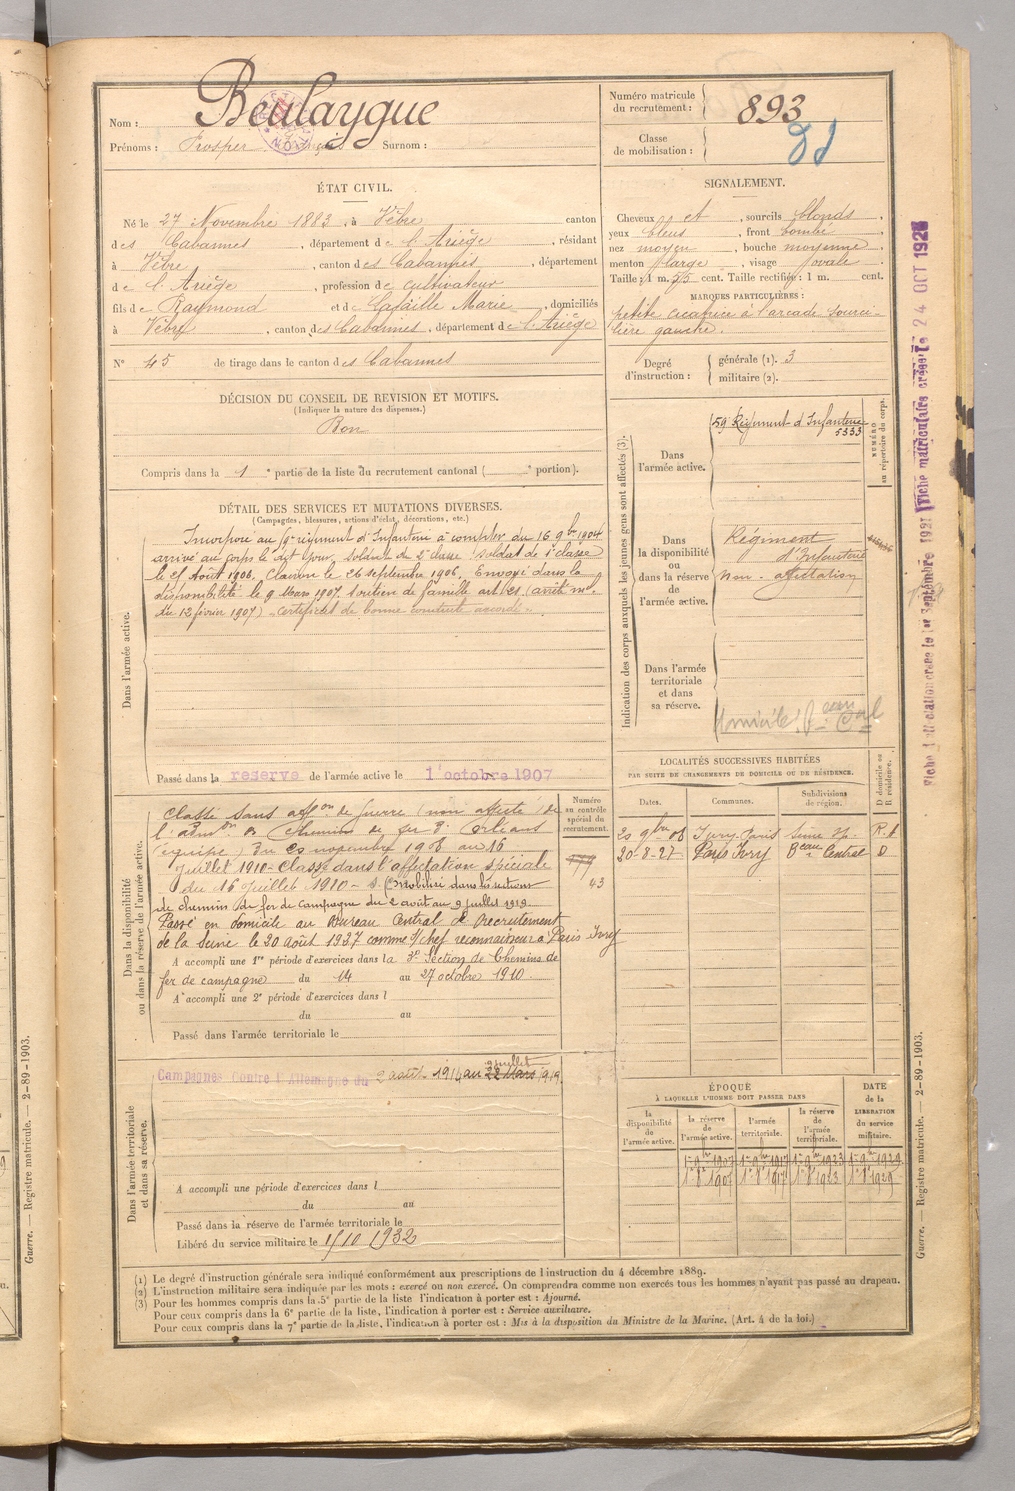 Nom : Beulaygue
Prénoms : Prosper Surnom :
Numéro matricule
du recrutement : 893
Classe
de mobilisation :
ÉTAT CIVIL.
Né le 27 Novembre 1883, à Vèbre canton
des Cabannes, département de l'Ariège, résidant
à Vèbre, canton des Cabannes, département
de l'Ariège, profession de cultivateur
fils de Raymond et de Lafaille Marie, domiciliés
à Vèbre, canton des Cabannes, département de l'Ariège
N° 45 de tirage dans le canton des Cabannes
DÉCISION DU CONSEIL DE REVISION ET MOTIFS.
(Indiquer la nature des dispenses.)
Bon
Compris dans la 1e partie de la liste du recrutement cantonal ( e portion).
SIGNALEMENT.
Cheveux et, sourcils blonds,
yeux bleus, front bombé,
nez moyen, bouche moyenne,
menton large, visage ovale.
Taille : 1 m. cent. Taille rectifiée : 1 m. cent.
MARQUES PARTICULIÈRES :
petite cicatrice à l'arcade sourci-
lière gauche.
Degré
d'instruction :
générale (1). 3
militaire (2).
DÉTAIL DES SERVICES ET MUTATIONS DIVERSES.
(Campagnes, blessures, actions d'éclat, décorations, etc.)
Dans l'armée active.
Incorporé au 59e régiment d'Infanterie à compter du 16 9bre 1904
arrivé au corps le dit jour, soldat de 2e classe. Soldat de 1e classe
le 25 Août 1906. Clairon le 26 septembre 1906. Envoyé dans la
disponibilité le 9 Mars 1907. Soutien de famille art.
du 12 février 1907) certificat de bonne conduite accordé.
Passé dans la réserve de l'armée active le 1 octobre 1907
Indication des corps auxquels les jeunes gens sont affectés (3).
NUMÉRO
au répertoire du corps.
Dans
l'armée active.
59 Régiment d'Infanterie
5333
Dans
la disponibilité
ou
dans la réserve
de
l'armée active.
Régiment
d'Infanterie
non-affectation
Dans l'armée
territoriale
et dans
sa réserve.
Dans la disponibilité
ou dans la réserve de l'armée active.
Classé sans affon de guerre (non affecté) de
l' admon des chemins de fer P. Orléans
(équipe) du 20 novembre 1908 au 16
Juillet 1910 - Classé dans l'affectation spéciale
du 16 Juillet 1910 - Mobilisé dans les sections
de chemin de fer de campagne du 2 août au 9 juillet 1919
Passé en domicile au Bureau Central de Recrutement
de la Seine le 30 août 1927 comme s/chef reconnaisseur à Paris Ivry
A accompli une 1re période d'exercices dans la 3e Section de Chemins de
fer de campagne du 14 au 27 octobre 1910.
A accompli une 2e période d'exercices dans l
du au
Passé dans l'armée territoriale le
Numéro
au contrôle
spécial du
recrutement.
43
LOCALITÉS SUCCESSIVES HABITÉES
PAR SUITE DE CHANGEMENTS DE DOMICILE OU DE RÉSIDENCE.
Dates. Communes. Subdivisions
de région. D domicile ou
R. résidence.
20 9bre 08 Ivry-Paris Seine R.
30-8-27 Paris Ivry Beau Central D
Dans l'armée territoriale
et dans sa réserve.
Campagnes Contre l'Allemagne du 2 août 1914 au 22 Mars 1919
9 juillet
A accompli une période d'exercices dans l
du au
Passé dans la réserve de l'armée territoriale le
Libéré du service militaire le 15/10 1932
ÉPOQUE
À LAQUELLE L'HOMME DOIT PASSER DANS
la
disponibilité
de
l'armée active.
la réserve
de
l'armée active.
l'armée
territoriale.
la réserve
de
l'armée
territoriale.
DATE
de la
LIBÉRATION
du service
militaire.
1er 9bre 1907 1er 9bre 1917 1er 9bre 1923 1er 9bre 1929
1er 8bre 1907 1er 8bre 1917 1er 8bre 1923 1er 8bre 1929
(1) Le degré d'instruction générale sera indiqué conformément aux prescriptions de l'instruction du 4 décembre 1889.
(2) L'instruction militaire sera indiquée par les mots : exercé ou non exercé. On comprendra comme non exercés tous les hommes n'ayant pas passé au drapeau.
(3) Pour les hommes compris dans la 5e partie de la liste l'indication à porter est : Ajourné.
Pour ceux compris dans la 6e partie de la liste, l'indication à porter est : Service auxiliaire.
Pour ceux compris dans la 7e partie de la liste, l'indication à porter est : Mis à la disposition du Ministre de la Marine. (Art. 4 de la loi.)
Guerre. — Registre matricule. — 2-89-1903.
Guerre. — Registre matricule. — 2-89-1903.
Fiche matriculaire créée le 24 OCT 192